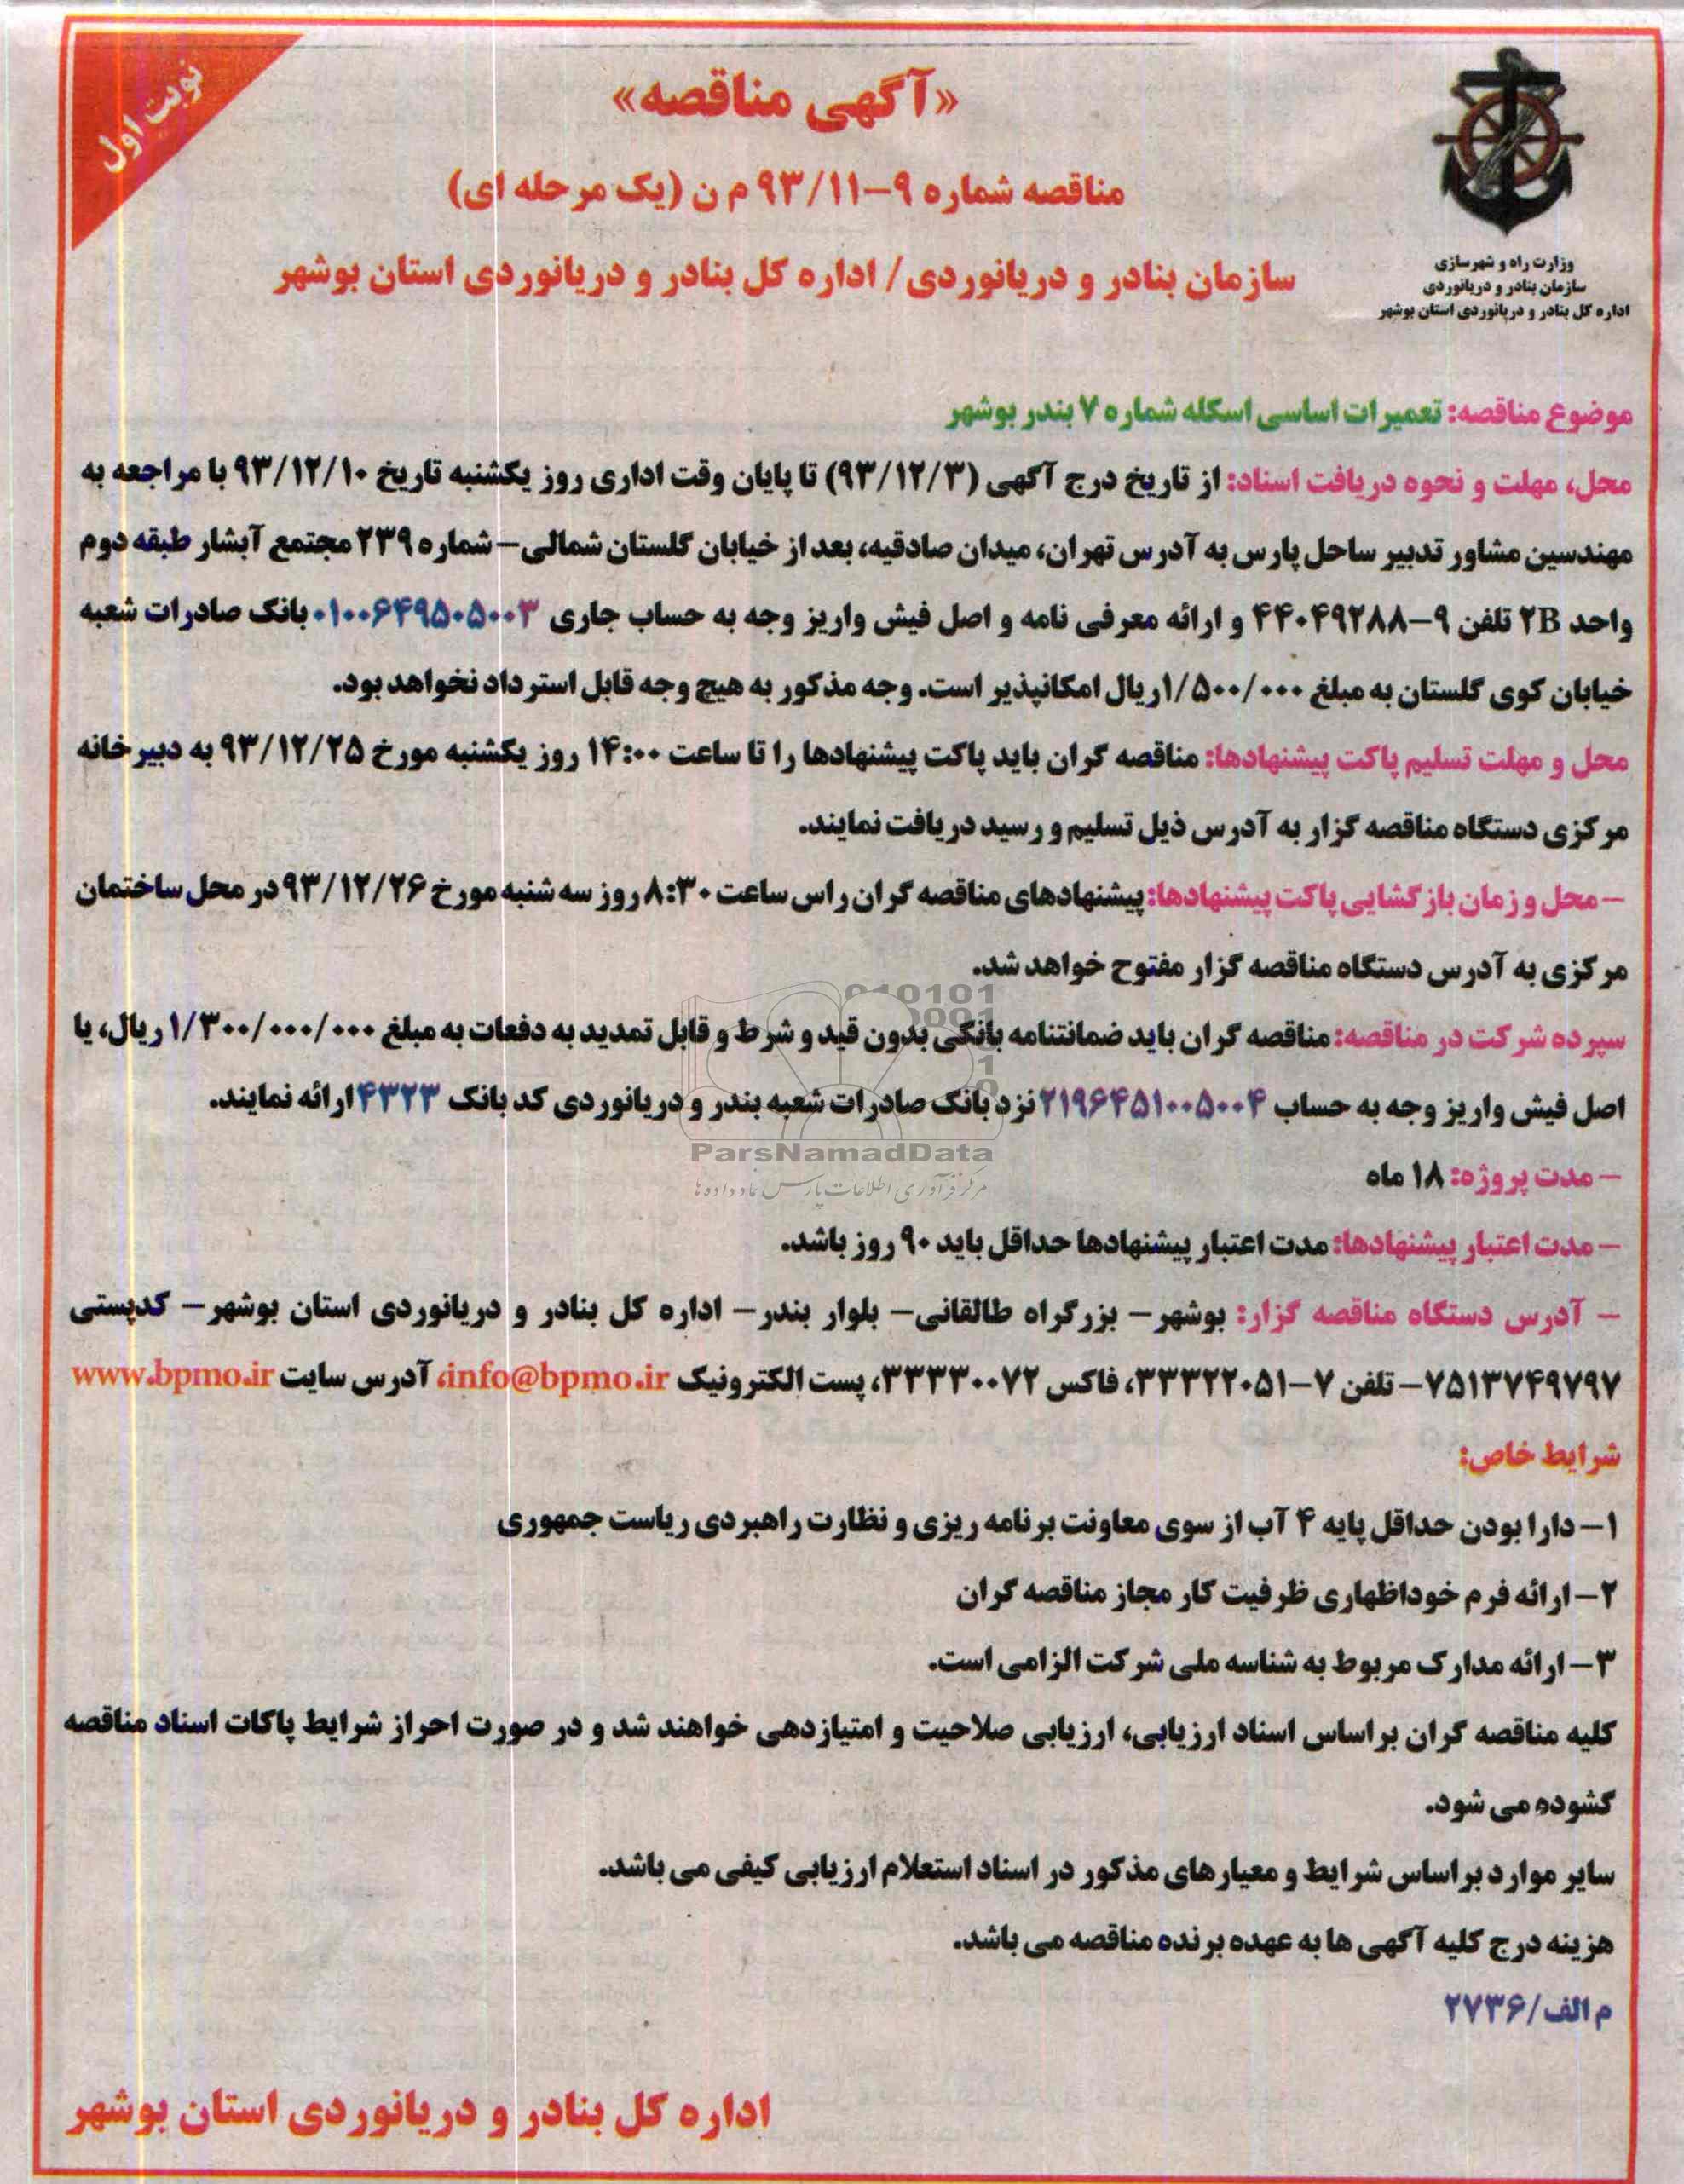 نوبت اول
«آگهی مناقصه»
مناقصه شماره ۹-۹۳/۱۱ م ن (یک مرحله ای)
سازمان بنادر و دریانوردی/ اداره کل بنادر و دریانوردی استان بوشهر
وزارت راه و شهرسازی
سازمان بنادر و دریانوردی
اداره کل بنادر و دریانوردی استان بوشهر
موضوع مناقصه: تعمیرات اساسی اسکله شماره ۷ بندر بوشهر
محل، مهلت و نحوه دریافت اسناد: از تاریخ درج آگهی (۹۳/۱۲/۳) تا پایان وقت اداری روز یکشنبه تاریخ ۹۳/۱۲/۱۰ با مراجعه به
مهندسین مشاور تدبیر ساحل پارس به آدرس تهران، میدان صادقیه، بعد از خیابان گلستان شمالی- شماره ۲۳۹ مجتمع آبشار طبقه دوم
واحد ۲B تلفن ۹-۴۴۰۴۹۲۸۸ و ارائه معرفی نامه و اصل فیش واریز وجه به حساب جاری ۰۱۰۰۶۴۹۵۰۵۰۰۳ بانک صادرات شعبه
خیابان کوی گلستان به مبلغ ۱/۵۰۰/۰۰۰ریال امکانپذیر است. وجه مذکور به هیچ وجه قابل استرداد نخواهد بود.
محل و مهلت تسلیم پاکت پیشنهادها: مناقصه گران باید پاکت پیشنهادها را تا ساعت ۱۴:۰۰ روز یکشنبه مورخ ۹۳/۱۲/۲۵ به دبیرخانه
مرکزی دستگاه مناقصه گزار به آدرس ذیل تسلیم و رسید دریافت نمایند.
- محل و زمان بازگشایی پاکت پیشنهادها: پیشنهادهای مناقصه گران راس ساعت ۸:۳۰ روز سه شنبه مورخ ۹۳/۱۲/۲۶ در محل ساختمان
مرکزی به آدرس دستگاه مناقصه گزار مفتوح خواهد شد.
سپرده شرکت در مناقصه: مناقصه گران باید ضمانتنامه بانکی بدون قید و شرط و قابل تمدید به دفعات به مبلغ ۱/۳۰۰/۰۰۰/۰۰۰ ریال، یا
اصل فیش واریز وجه به حساب ۲۱۹۶۴۵۱۰۰۵۰۰۴ نزد بانک صادرات شعبه بندر و دریانوردی کد بانک ۴۳۲۳ ارائه نمایند.
ParsNamadData
مرکز فرآوری اطلاعات پارس نماد داده ها
- مدت پروژه: ۱۸ ماه
- مدت اعتبار پیشنهادها: مدت اعتبار پیشنهادها حداقل باید ۹۰ روز باشد.
- آدرس دستگاه مناقصه گزار: بوشهر- بزرگراه طالقانی- بلوار بندر- اداره کل بنادر و دریانوردی استان بوشهر- کدپستی
۷۵۱۳۷۴۹۷۹۷- تلفن ۷-۳۳۳۲۲۰۵۱، فاکس ۳۳۳۳۰۰۷۲، پست الکترونیک info@bpmo.ir، آدرس سایت www.bpmo.ir
شرایط خاص:
۱- دارا بودن حداقل پایه ۴ آب از سوی معاونت برنامه ریزی و نظارت راهبردی ریاست جمهوری
۲- ارائه فرم خوداظهاری ظرفیت کار مجاز مناقصه گران
۳- ارائه مدارک مربوط به شناسه ملی شرکت الزامی است.
کلیه مناقصه گران براساس اسناد ارزیابی، ارزیابی صلاحیت و امتیازدهی خواهند شد و در صورت احراز شرایط پاکات اسناد مناقصه
گشوده می شود.
سایر موارد براساس شرایط و معیارهای مذکور در اسناد استعلام ارزیابی کیفی می باشد.
هزینه درج کلیه آگهی ها به عهده برنده مناقصه می باشد.
م الف/۲۷۳۶
اداره کل بنادر و دریانوردی استان بوشهر